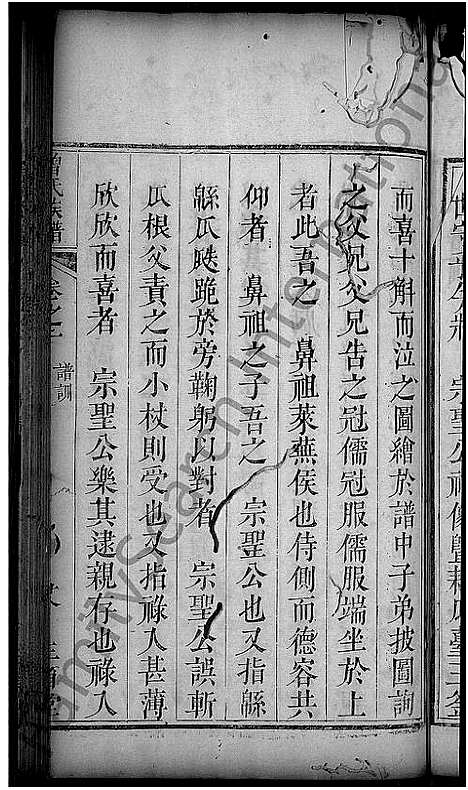 而喜十斛而泣之圖繪於譜中子弟披圖詢
之父兄父兄告之冠儒冠服儒服端坐於上
者此吾之 鼻祖萊蕪侯也侍側而德容共
仰者 鼻祖之子吾之 宗聖公也又指緜
緜瓜瓞跪於旁鞠躬以對者 宗聖公誤斬
瓜根父責之而小杖則受也又指祿入甚薄
欣欣而喜者 宗聖公樂其逮親存也祿入
曾氏族譜 卷之二 譜訓
FamilySearch International